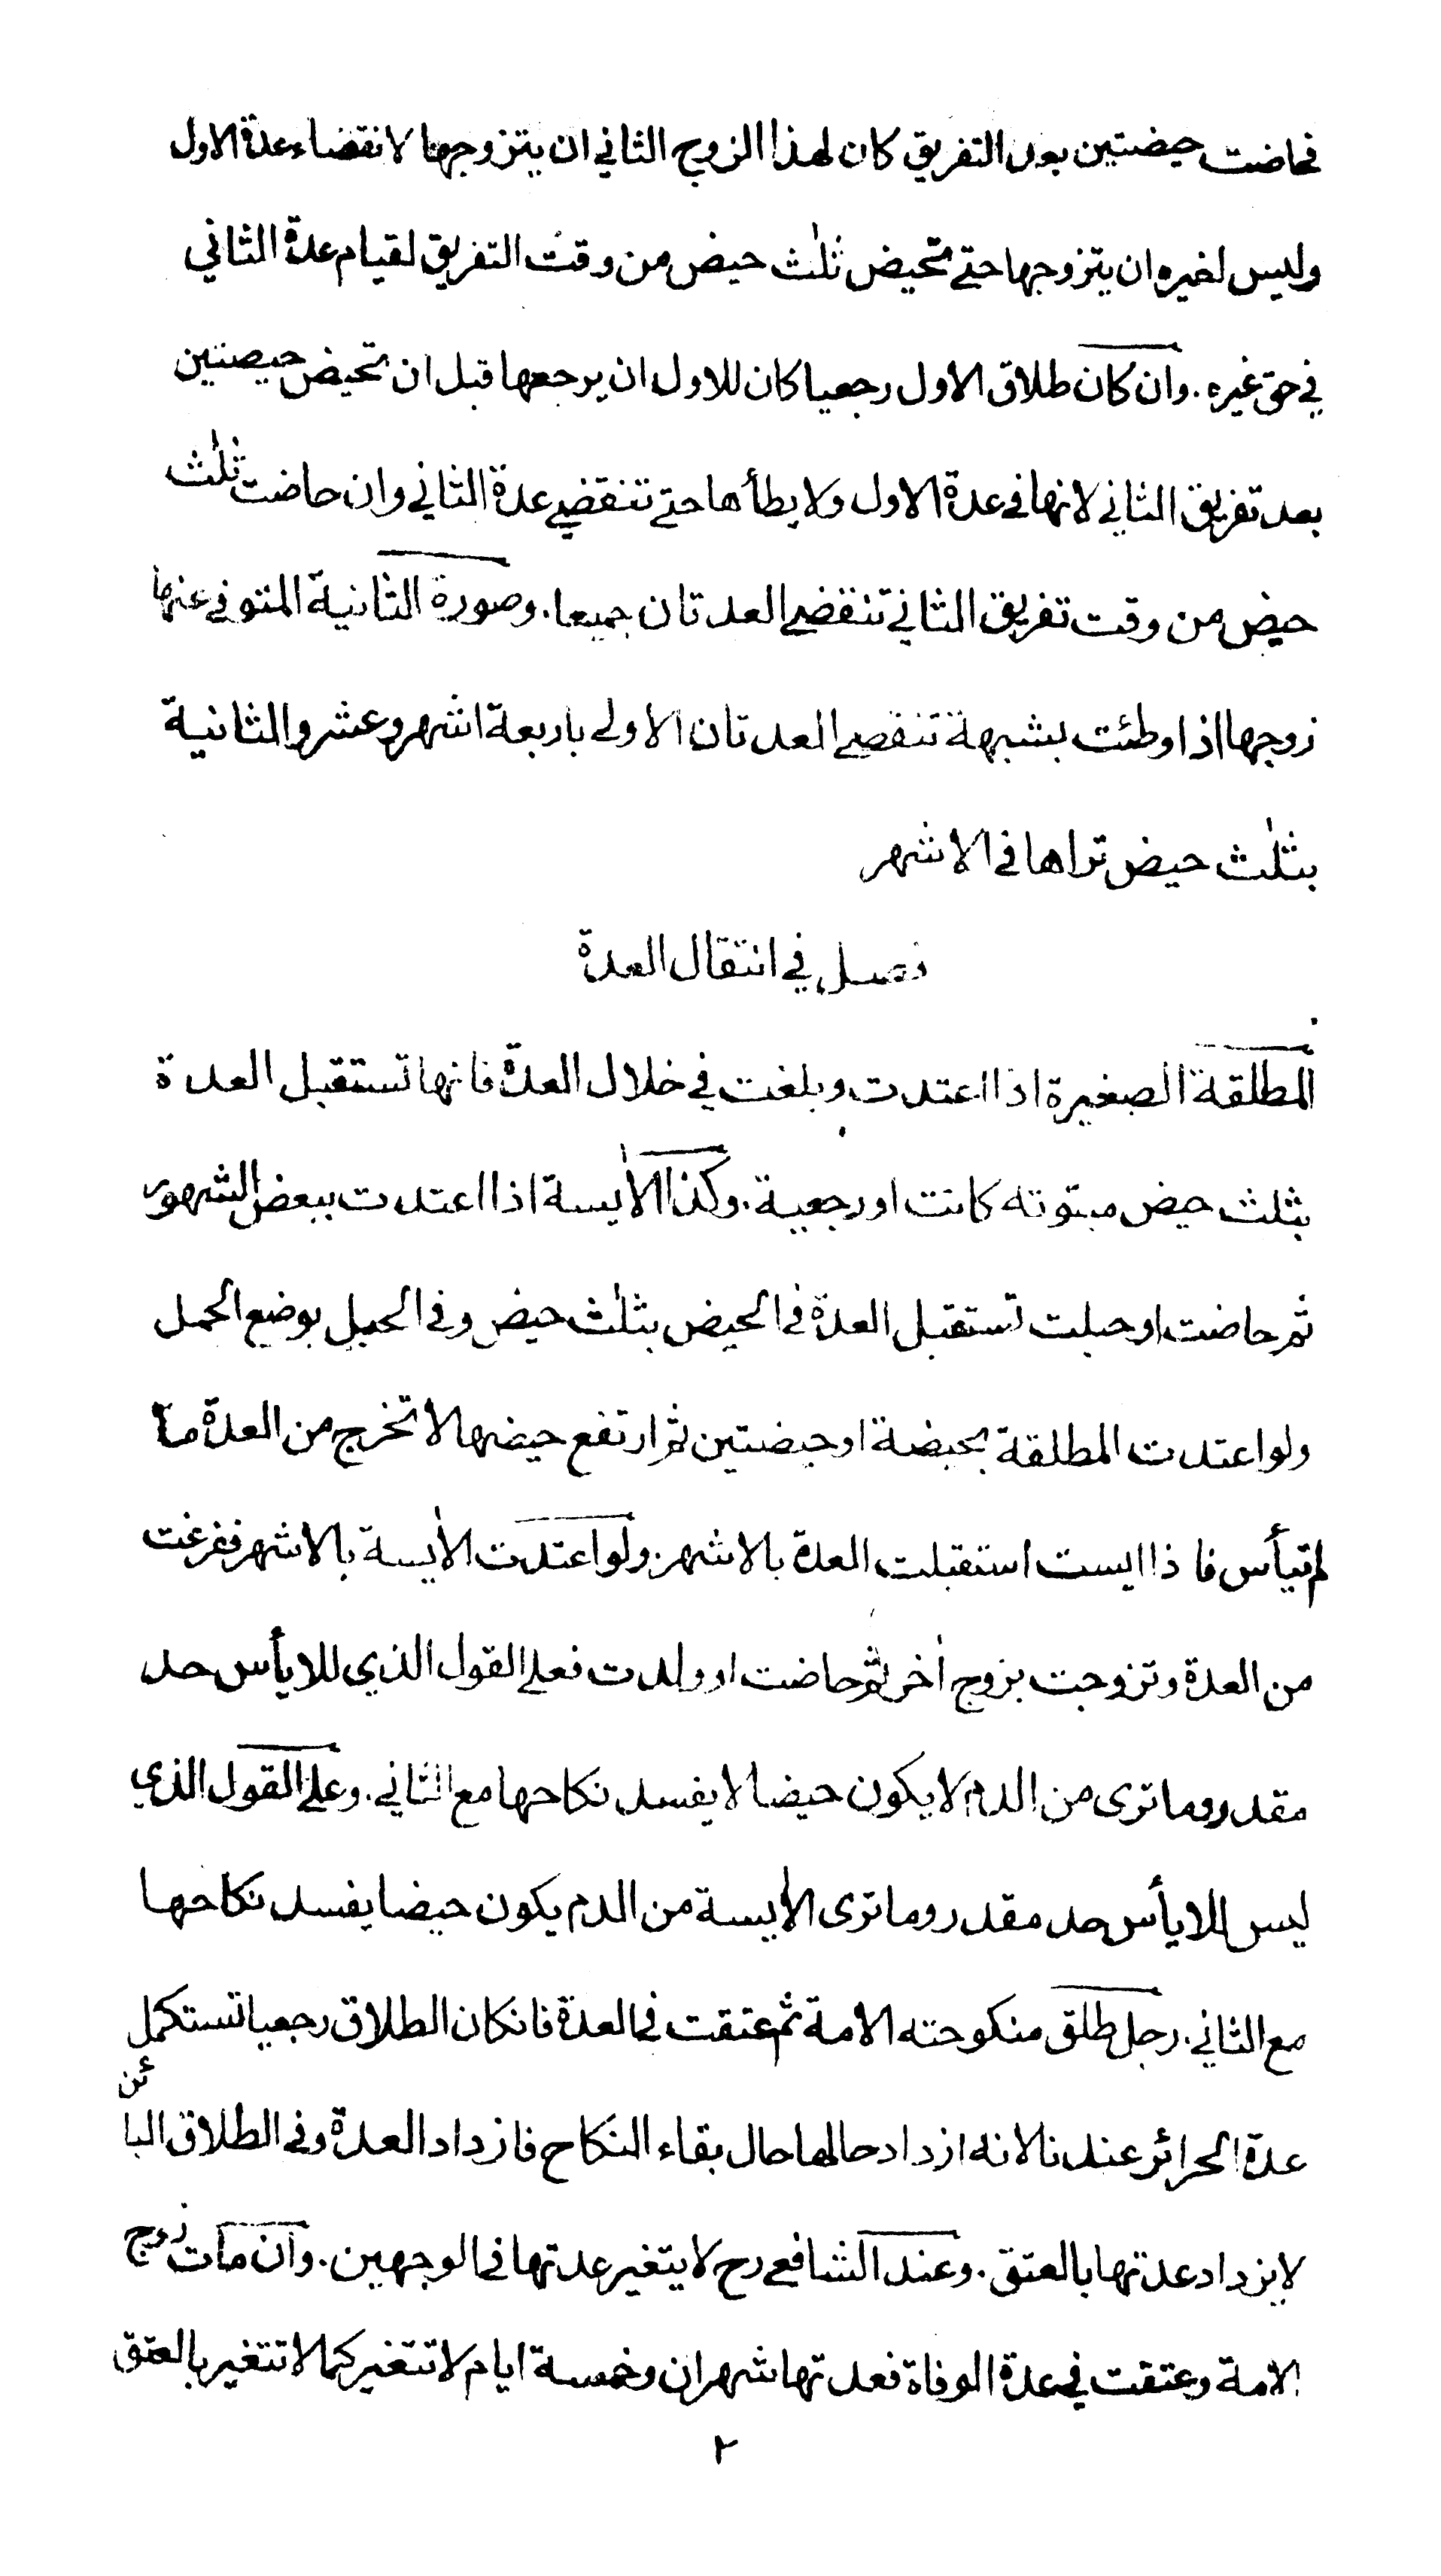 فحاضت حيضتين بعد التفريق كان لهذا الزوج الثاني ان يتزوجها لانقضاء عدة الاول
وليس لغيره ان يتزوجها حتے تحيض ثلٰث حيض من وقت التفريق لقيام عدة الثاني
في حق غيره . وان كان طلاق الاول رجعيا كان للاول ان يرجعها قبل ان تحيض حيضتين
بعد تفريق الثاني لانها فے عدة الاول ولا يطأها حتے تنقضے عدة الثاني وان حاضت ثلٰث
حيض من وقت تفريق الثاني تنقضے العدتان جميعا . وصورة الثانية المتوفے عنها
زوجها اذا وطئت بشبهة تنقضے العدتان الاولے باربعة اشهر وعشر والثانية
بثلٰث حيض تراها فى الاشهر
فصل في انتقال العدة
المطلقة الصغيرة اذا اعتدت وبلغت في خلال العدة فانها تستقبل العدة
بثلث حيض مبتوته كانت او رجعية . وكذا الاٰيسة اذا اعتدت ببعض الشهور
ثم حاضت او حبلت تستقبل العدة فى الحيض بثلٰث حيض وفى الحبل بوضع الحمل
ولو اعتدت المطلقة بحيضة او حيضتين ثم ارتفع حيضها لا تخرج من العدة ما
لم تيأس فاذا ايست استقبلت العدة بالاشهر . ولو اعتدت الاٰيسة بالاشهر ففرغت
من العدة وتزوجت بزوج اٰخر ثم حاضت او ولدت فعلے القول الذي للاياس حد
مقدر وما ترى من الدم لا يكون حيضا لا يفسد نكاحها مع الثاني . وعلے القول الذي
ليس للايأس حد مقدر وما ترى الاٰيسة من الدم يكون حيضا يفسد نكاحها
مع الثاني . رجل طلق منكوحته الامة ثم عتقت فى العدة فانكان الطلاق رجعيا تستكمل
عدة الحرائر عندنا لانه ازداد حالها حال بقاء النكاح فازداد العدة وفى الطلاق البائن
لا يزداد عدتها بالعتق . وعند الشافعے رح لا يتغير عدتها فى الوجهين . وان مات زوج
الامة وعتقت في عدة الوفاة فعدتها شهران وخمسة ايام لا تتغير كما لا تتغير بالعتق
٢